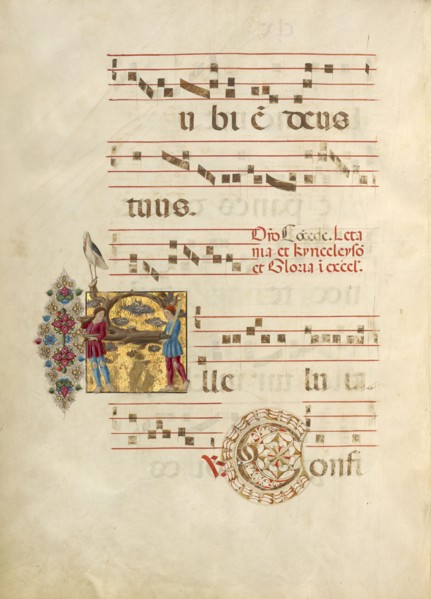 u bi ē deus
tuus.
Orō Cōcede. Leta
nia et kyrieeleysō
et Gloria i excel.
Alle lu ia.
℣ Confi